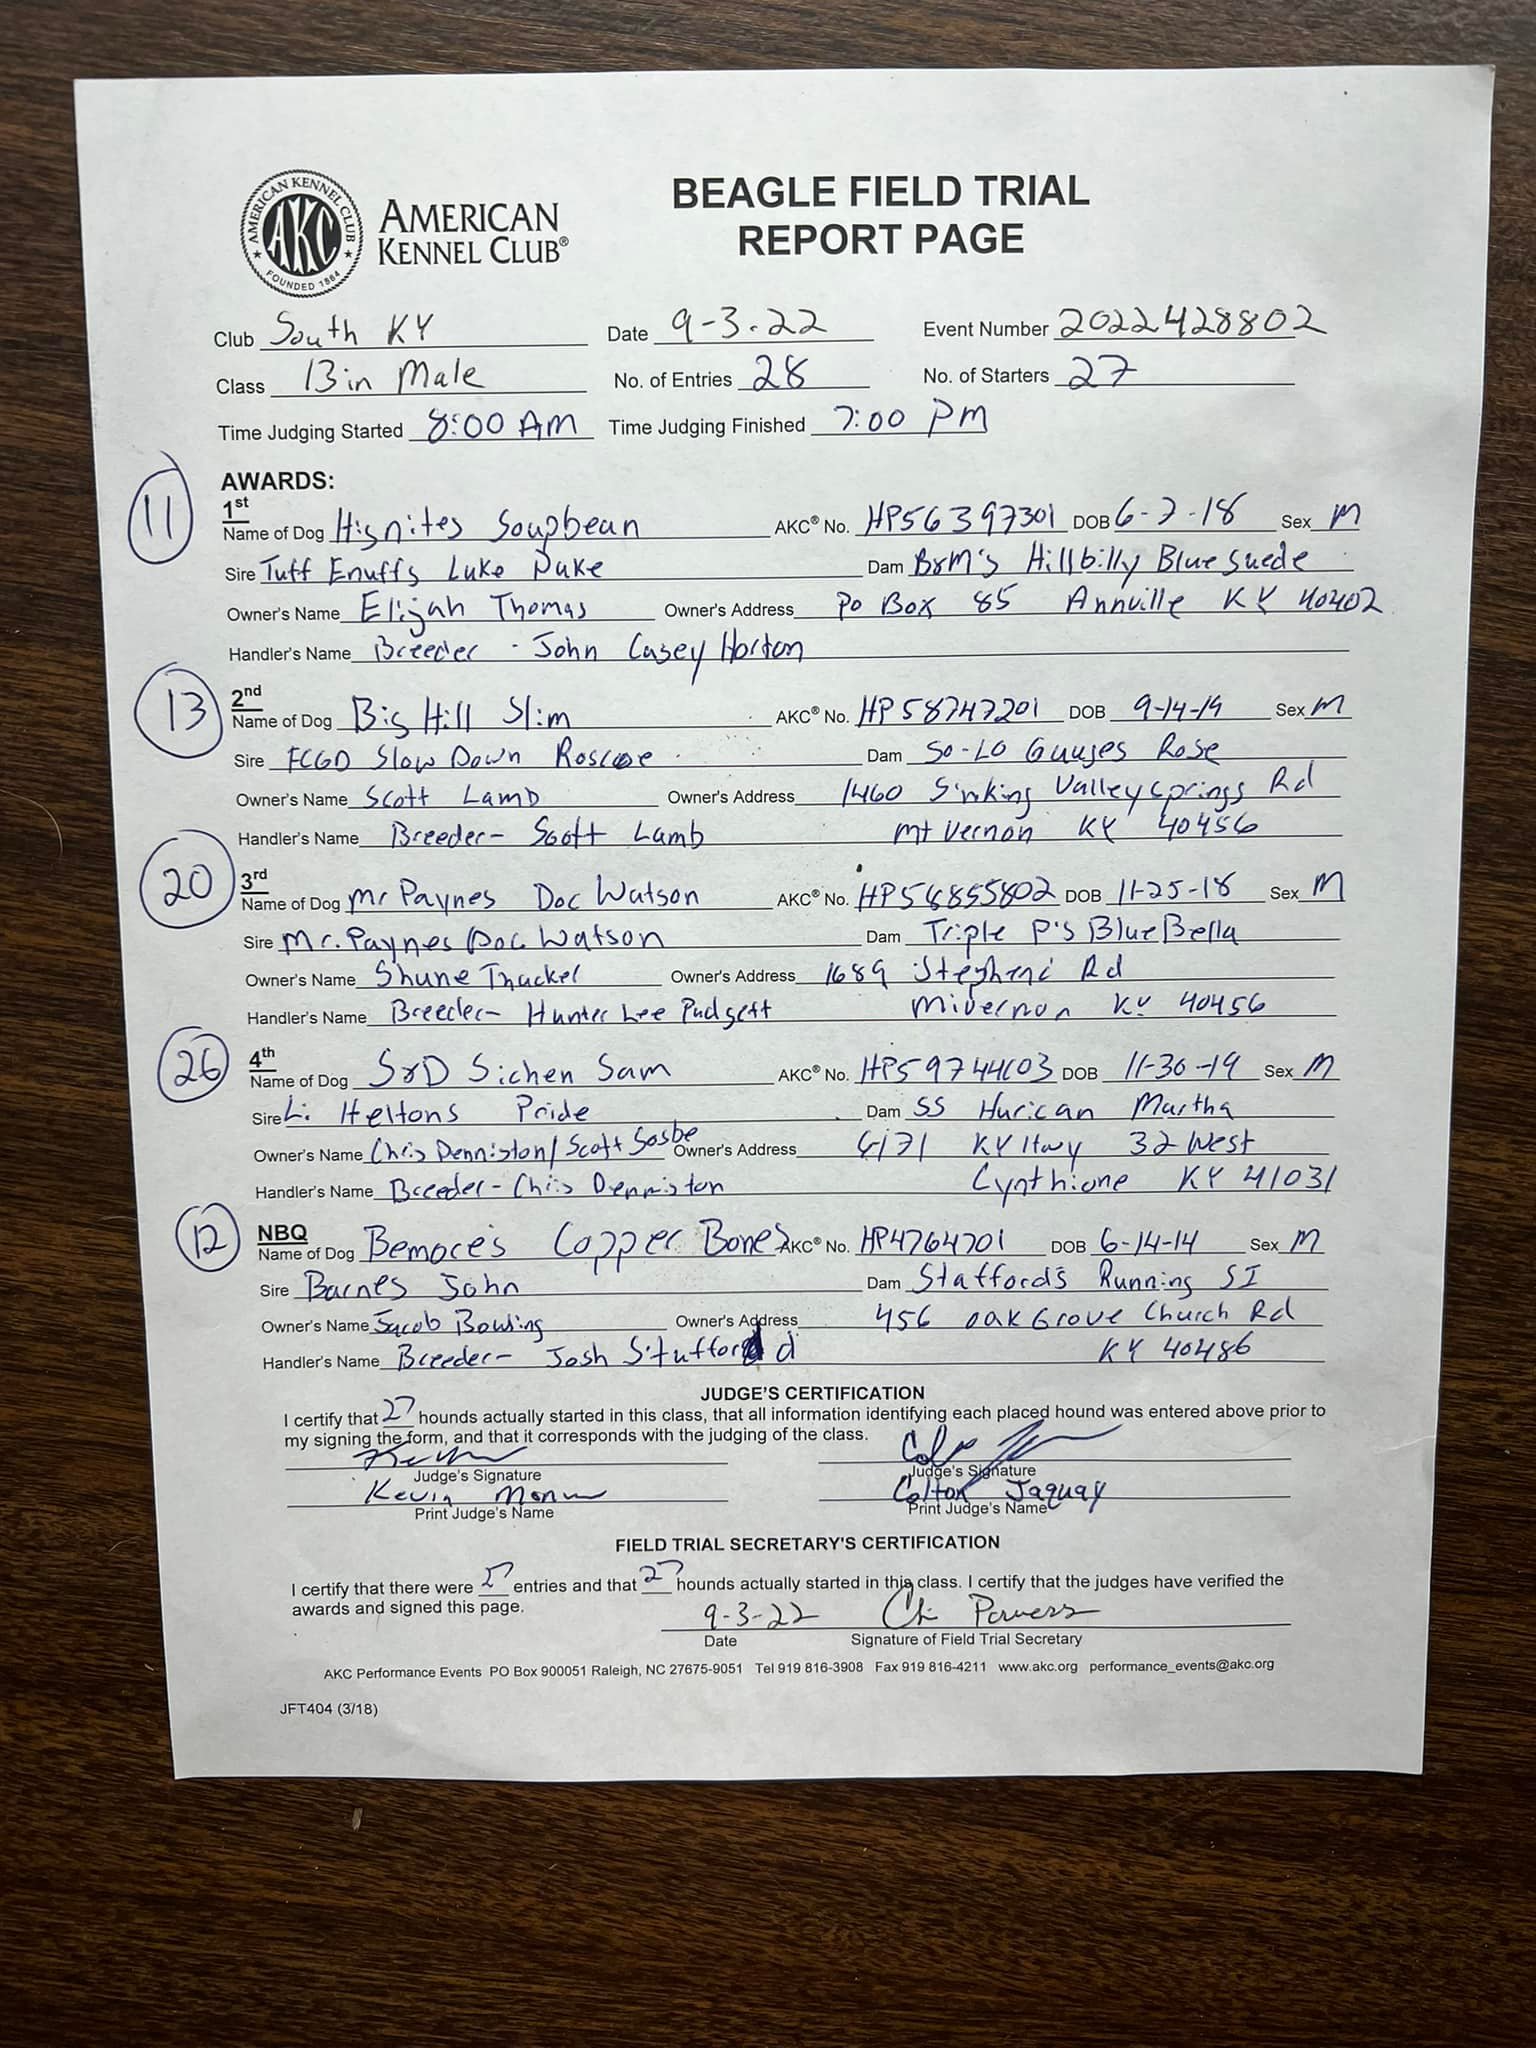 AMERICAN KENNEL CLUB
AKC
FOUNDED 1884
AMERICAN
KENNEL CLUB®
BEAGLE FIELD TRIAL
REPORT PAGE
Club South KY Date 9-3-22 Event Number 2022428802
Class 13 in Male No. of Entries 28 No. of Starters 27
Time Judging Started 8:00 AM Time Judging Finished 7:00 PM
AWARDS:
11 1st
Name of Dog Hignites Soupbean AKC® No. HP56397301 DOB 6-7-18 Sex M
Sire Tuff Enuffs Luke Duke Dam B&M's Hillbilly Blue Suede
Owner's Name Elijah Thomas Owner's Address Po Box 85 Annville KY 40402
Handler's Name Breeder - John Casey Horton
13 2nd
Name of Dog Big Hill Slim AKC® No. HP58747201 DOB 9-14-19 Sex M
Sire FCGD Slow Down Roscoe Dam So-Lo Gauges Rose
Owner's Name Scott Lamb Owner's Address 1460 Sinking Valley Springs Rd
Handler's Name Breeder- Scott Lamb Mt Vernon KY 40456
20 3rd
Name of Dog Mr Paynes Doc Watson AKC® No. HP56855802 DOB 11-25-18 Sex M
Sire Mr. Paynes Doc Watson Dam Triple P's Blue Bella
Owner's Name Shane Thacker Owner's Address 1689 Rd
Handler's Name Breeder- Hunter Lee Padgett KY 40456
26 4th
Name of Dog S&D Sichen Sam AKC® No. DOB 11-30-19 Sex M
Sire Li Heltons Pride Dam SS Hurican Martha
Owner's Name Chris Denniston/Scott Sosbe Owner's Address KY Hwy 32 West
Handler's Name Breeder- Chris Denniston Cynthiane KY 41031
12 NBQ
Name of Dog Bemore's Copper Bones AKC® No. HP4764701 DOB 6-14-14 Sex M
Sire Barnes John Dam Stafford's Running SI
Owner's Name Jacob Bowling Owner's Address 456 Oak Grove Church Rd
Handler's Name Breeder- Josh Stafford KY 40486
JUDGE'S CERTIFICATION
I certify that 27 hounds actually started in this class, that all information identifying each placed hound was entered above prior to
my signing the form, and that it corresponds with the judging of the class.
Judge's Signature Judge's Signature
Kevin Colton Jaquay
Print Judge's Name Print Judge's Name
FIELD TRIAL SECRETARY'S CERTIFICATION
I certify that there were 27 entries and that 27 hounds actually started in this class. I certify that the judges have verified the
awards and signed this page.
9-3-22 Powers
Date Signature of Field Trial Secretary
AKC Performance Events PO Box 900051 Raleigh, NC 27675-9051 Tel 919 816-3908 Fax 919 816-4211 www.akc.org performance_events@akc.org
JFT404 (3/18)